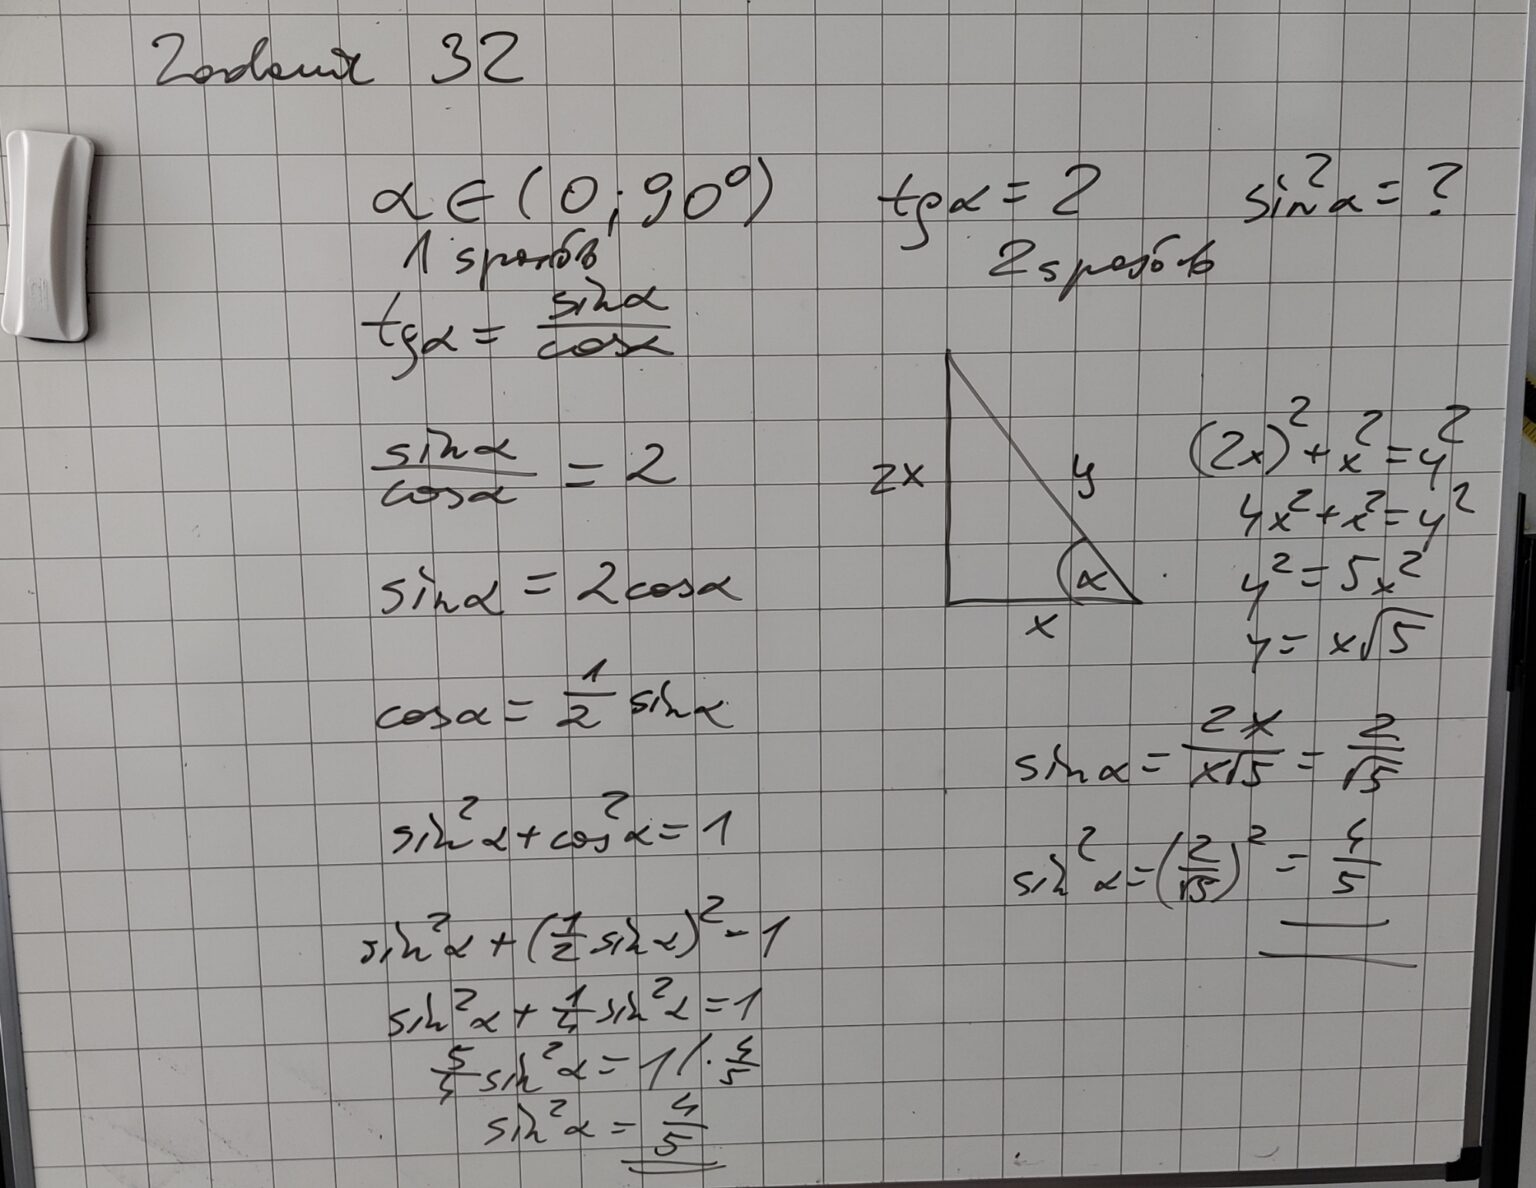 Zadanie 32
α ∈ (0; 90°) tgα = 2 sin²α = ?
1 sposób
tgα = sinα/cosα
sinα/cosα = 2
sinα = 2cosα
cosα = 1/2 sinα
sin²α + cos²α = 1
sin²α + (1/2 sinα)² - 1
sin²α + 1/4 sin²α = 1
5/4 sin²α = 1 /· 4/5
sin²α = 4/5
2 sposób
2x
y
α
x
(2x)² + x² = y²
4x² + x² = y²
y² = 5x²
y = x√5
sinα = 2x/x√5 = 2/√5
sin²α = (2/√5)² = 4/5